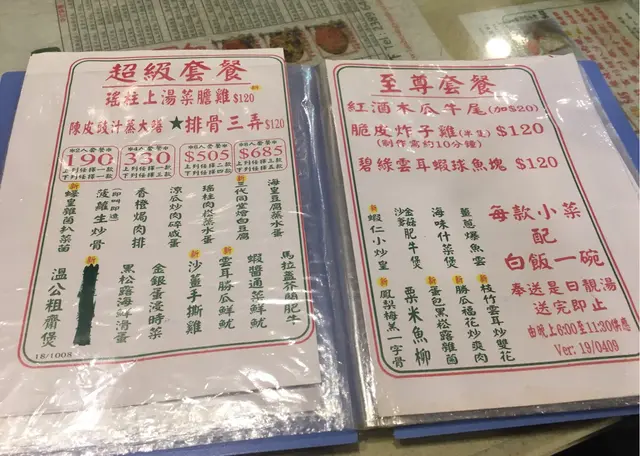 超級套餐
新
瑤柱上湯菜膽雞$120
陳皮豉汁蒸大鱔 ★排骨三弄$120
✡2人套餐✡
190
上列任擇一款
下列任擇一款
✡4人套餐✡
330
上列任擇一款
下列任擇三款
✡6人套餐✡
$505
上列任擇二款
下列任擇四款
✡8人套餐✡
$685
上列任擇三款
下列任擇五款
海皇豆腐蒸水蛋
新 三代同堂燴白豆腐
瑤柱肉崧蒸水蛋
涼瓜炒肉碎咸蛋
香橙焗肉排
菠蘿生炒骨
(即叫即造)
新 蠔皇雜菌扒菜苗
馬拉盞芥蘭肥牛
蝦醬通菜鮮魷
新 雲耳勝瓜鮮魷
新 沙薑手撕雞
金銀蛋浸時菜
黑松露海鮮滑蛋
新
溫公粗齋煲
18/1008
至尊套餐
紅酒木瓜牛尾(加$20)
脆皮炸子雞(半隻) $120
(制作需約10分鐘)
碧綠雲耳蝦球魚塊 $120
薑蔥爆魚雲
海味什菜煲
金菇肥牛煲
沙爹
新 蝦仁小炒皇
新 枝竹雲耳炒雙花
新 勝瓜福花炒爽肉
新 蛋包黑松露雜菌
粟米魚柳
新 鳳梨梅羔一字骨
每款小菜
配
白飯一碗
奉送是日靚湯
送完即止
由晚上6:00至11:30供應
Ver. 19/0409